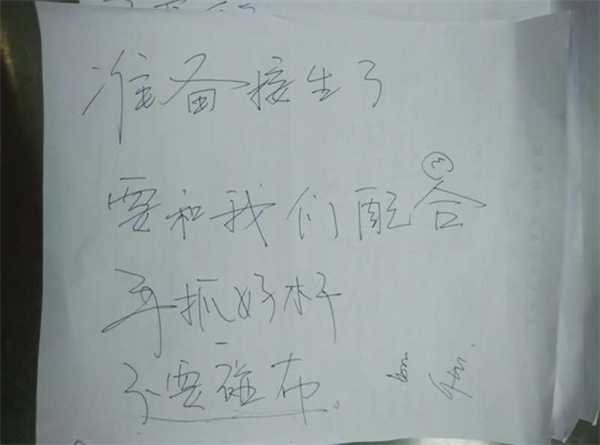 准备接生了
③
要和我们配合
手抓好杆
不要碰布。